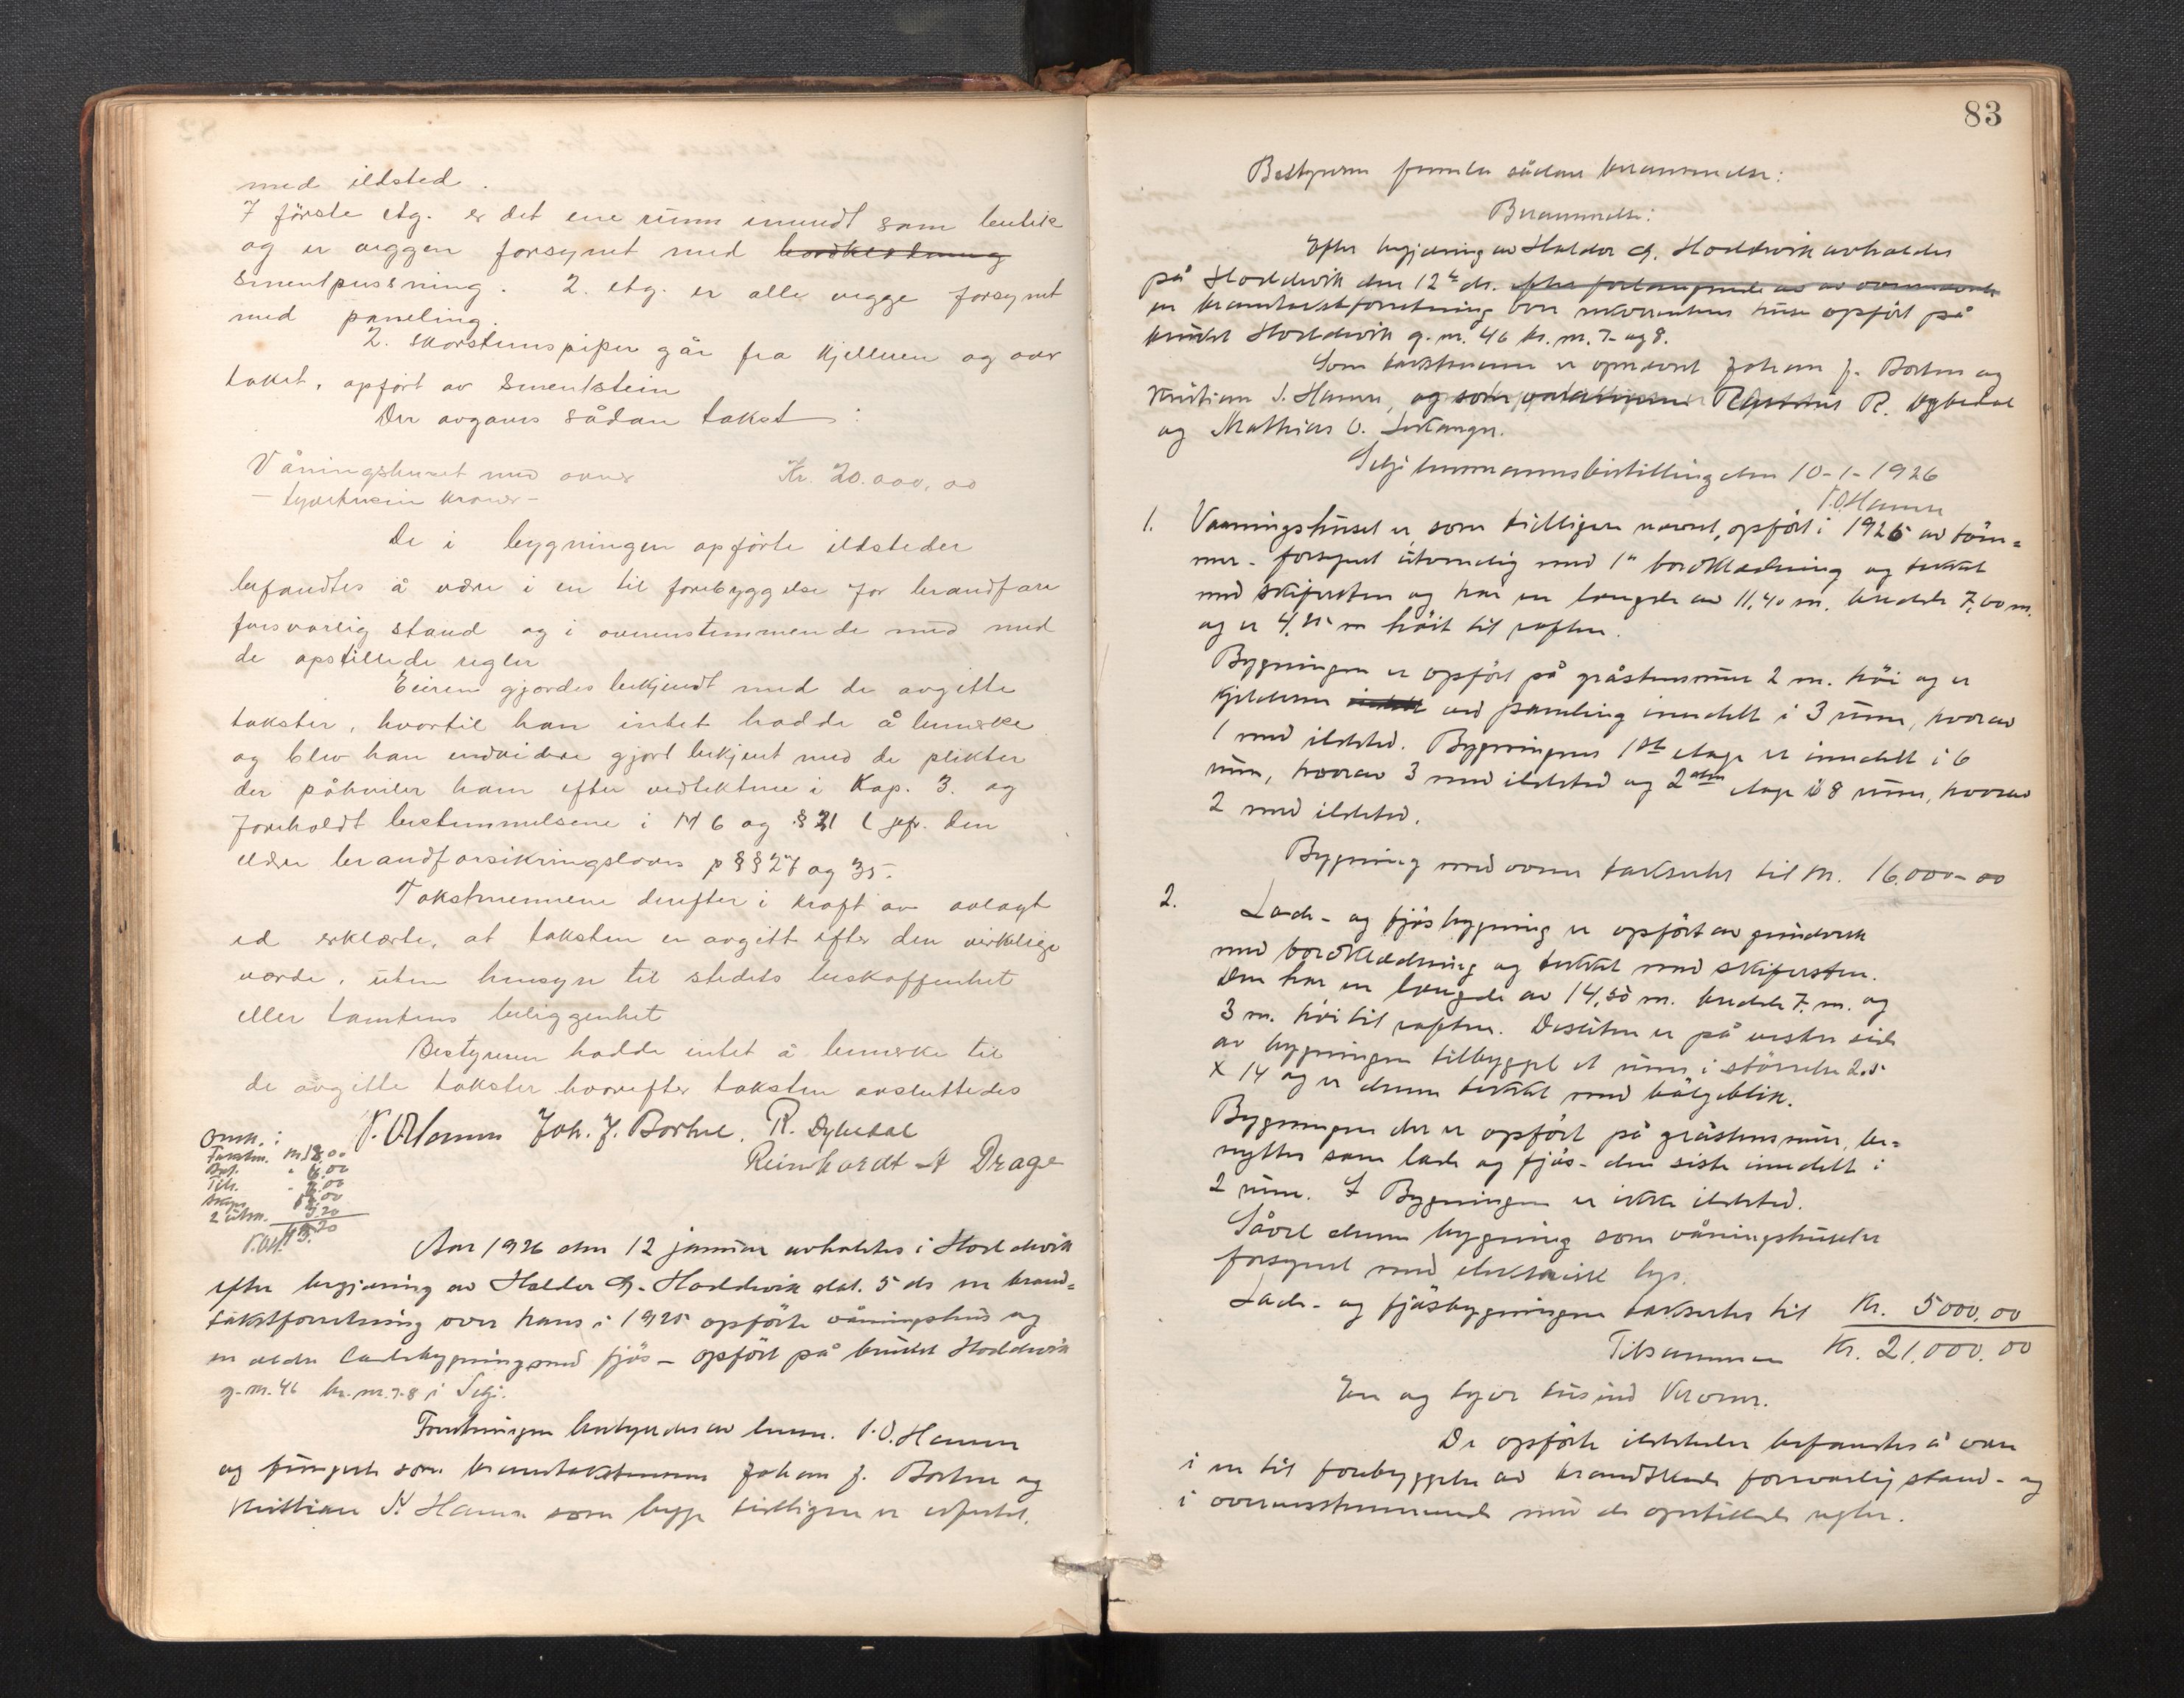 med ildsted.
I første etg. er det ene rum inredt som butik
og er veggen forsynt med bordklædning
sementpussning. 2. etg. er alle vegge forsynt
med paneling.
2. skorstenspiper går fra kjelleren og over
taket, opført av sementstein
Der avgaves sådan takst:
Våningshuset med ovner Kr. 20.000,00
- tyvetusen kroner -
De i bygningen opførte ildsteder
befandtes å være i en til forebyggelse for brandfare
forsvarlig stand og i overenstemmende med med
de opstillede regler
Eieren gjordes bekjendt med de avgitte
takster, hvortil han intet hadde å bemerke
og blev han endvidere gjort bekjent med de plikter
der påhviler ham efter vedtektene i Kap. 3. og
foreholdt bestemmelsene i M 6 og § 21 (jfr. den
eldre brandforsikringslovs p §§ 27 og 35.
Takstmennene derefter i kraft av avlagt
ed erklærte, at taksten er avgitt efter den virkelige
værde, uten hensyn til stedets beskaffenhet
eller tomtens beliggenhet
Bestyreren hadde intet å bemerke til
de avgitte takster hvorefter taksten avsluttedes
P. O. Hamre Joh. J. Borhne. R. Dybedal
Reinhardt A Drage
Omk.:
18,00
6,00
2 utskr. 3.20
43.20
Aar 1926 den 12 januar avholdtes i Hoddevik
efter begjæring av Haldor G. Hoddevik dat. 5 ds en brand-
takstforretning over hans i 1925 opførte våningshus og
en ældre ladebygning med fjøs - opført på bruket Hoddevik
g-nr. 46 br. nr. 7-8 i Selje.
Forretningen bestyredes av lensm. P. O. Hamre
og fungerte som brandtakstmenn Johan J. Borhne og
Kristian S. Hamre som begge tidligere er edfestet.
83
Bestyreren fremla sådan berammelse:
Berammelse:
Efter begjæring av Haldor G. Hoddevik avholdes
på Hoddevik den 12te ds.
en brandtakstforretning over rekvirentens huse opført på
bruket Hoddevik g. nr. 46 br. nr. 7 og 8.
Som takstmenn er opnævnt Johan J. Borhne og
Kristian S. Hamre, og som R. Dybedal
og Mathias O. Leikanger.
Selje lensmannsbestilling den 10-1-1926
P. O. Hamre
1. Vaaningshuset er, som tidligere nævnt, opført i 1925 av tøm-
mer - forsynet utvendig med 1" bordklædning og tækket
med skifersten og har en længde av 11,40 m. bredde 7,60 m.
og er 4, m høit til raften.
Bygningen er opført på gråstensmur 2 m. høi og er
kjelderen ved paneling inndelt i 3 rum, hvorav
1 med ildsted. Bygningens 1ste etage er inndelt i 6
rum, hvorav 3 med ildsted og 2den etage i 8 rum, hvorav
2 med ildsted.
Bygning med ovner takseres til kr. 16.000-00
2. Lade- og fjøsbygning er opført av grindverk
med bordklædning og tækket med skifersten.
Den har en længde av 14,50 m. bredde 7. m. og
3 m. høi til raften. Desuten er på vestre side
av bygningen tilbygget et rum i størrelse 2.5
x 14 og er denne tækket med bølgeblik.
Bygningen der er opført på gråstensmur, be-
nyttes som lade og fjøs - den siste inndelt i
2 rum. I Bygningen er ikke ildsted.
Såvel denne bygning som våningshuset er
forsynet med elektrisk lys.
Lade- og fjøsbygningen takseres til Kr. 5000,00
Tilsammen Kr. 21.000.00
En og tyve tusind kroner.
De opførte ildsteder befandtes å være
i en til forebyggelse av brandskade forsvarlig stand - og
i overensstemmende med de opstillede regler.